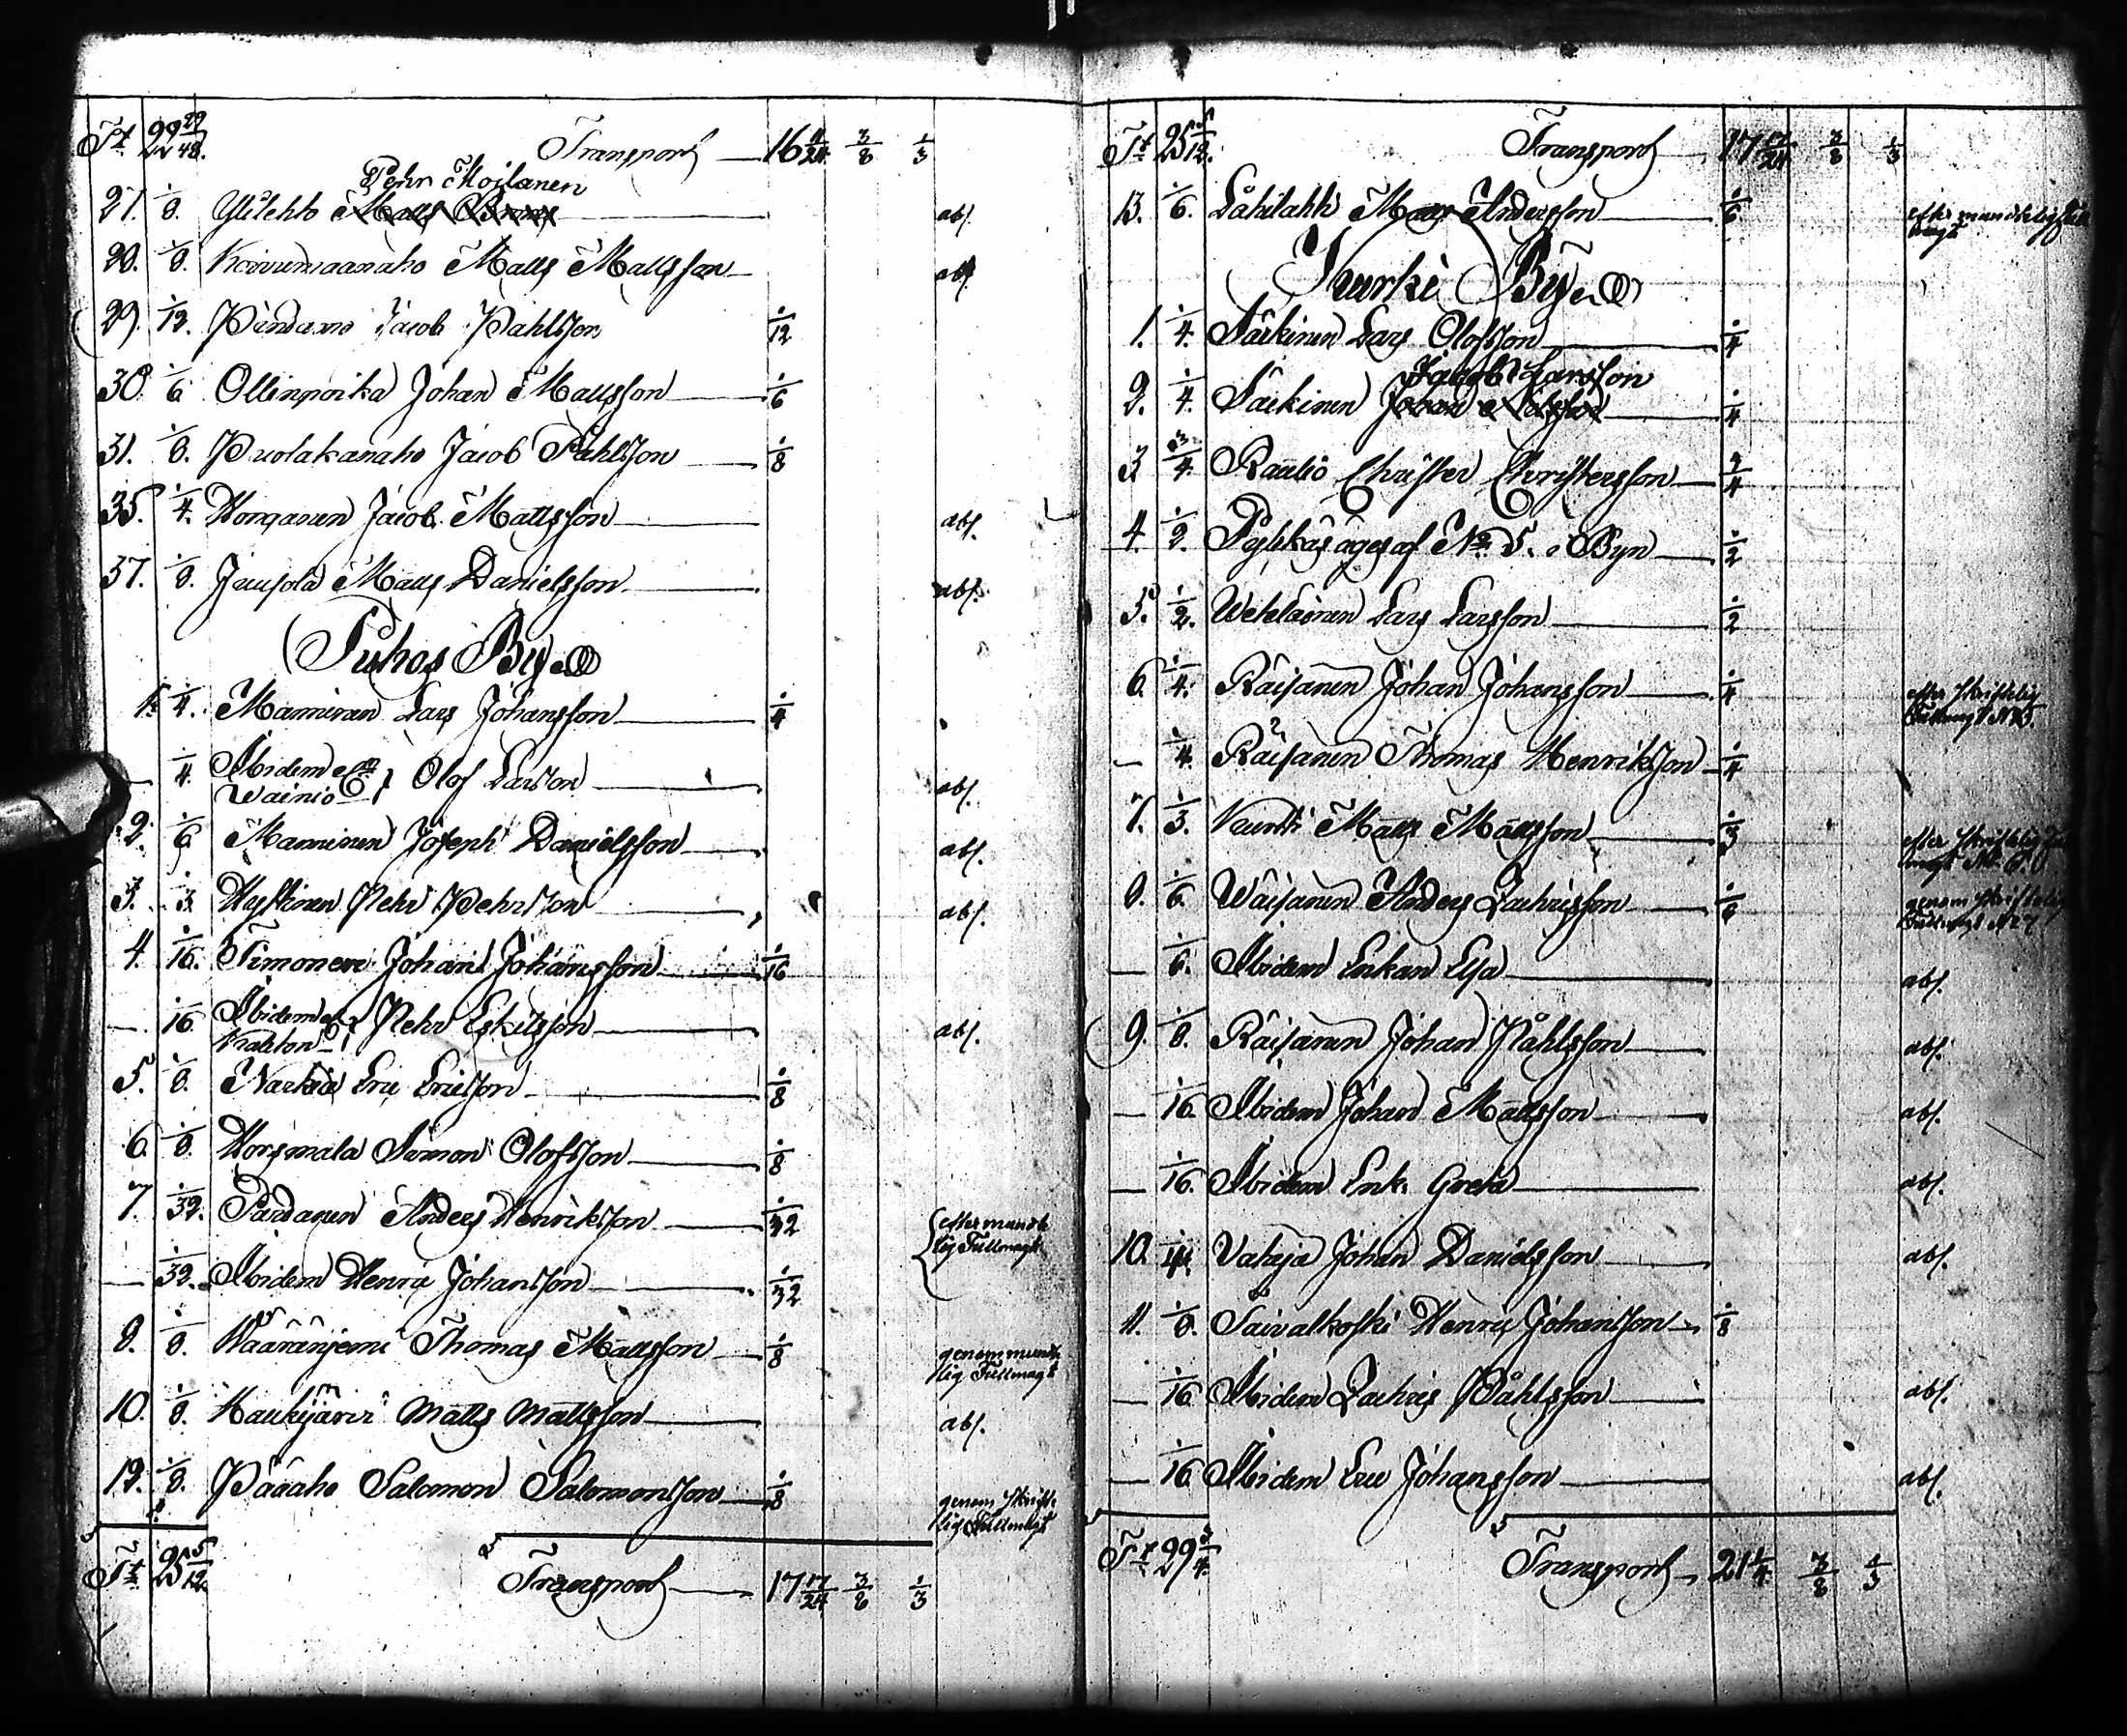 Tt. 22 29/48. Transport 16 11/24 3/8 1/3
Pehr Moilanen
27. 1/8. Ylilehto Matts abs.
28. 1/8. Koivumaanaho Matts Mattsson abs.
29. 1/12. Jacob Påhlsson 1/12
30. 1/6 Ollinpoika Johan Mattsson 1/6
31. 1/8. Puolakanaho Jacob Påhlsson 1/8
35. 1/4. Horganen Jacob Mattsson abs.
37. 1/8. Matts Danielsson abs.
Puhos By
1. 1/4. Manninen Lars Johansson 1/4
— 1/4. Ibidem Olof Larsson abs.
Wainio
2. 1/6 Manninen Joseph Danielsson abs.
3. 1/3 Hyttinen Pehr Pehrsson abs.
4. 1/16. Timonen Johan Johansson 1/16
— 1/16. Ibidem Pehr Eskilsson abs.
5. 1/8. Eric Ericsson 1/8
6. 1/8. Horsmala Simon Olofsson 1/8
7. 1/32. Pärdänen Anders Henriksson 1/32 efter mundt-
lig Fullmagt
— 1/32. Ibidem Henric Johansson 1/32
8. 1/8. Wääräniemi Thomas Mattsson 1/8 genom mundt-
lig Fullmagt
10. 1/8. Haukijärvi Matts Mattsson abs.
12. 1/8. Pääaho Salomon Salomonsson 1/8 genom skrift-
lig Fullmagt
Tt. 25 5/12. Transport 17 17/24 3/8 1/3
Tt. 25 5/12. Transport 17 17/24 3/8 1/3
13. 1/6. Låhilahti Matts Andersson 1/6 efter mundtelig Full-
magt
Kurki By
1. 1/4. Särkinen Lars Olofsson 1/4
Jacob Larsson
2. 1/4. Särkinen Johan 1/4
3 3/4. Raatio Christer Christersson 3/4
4. 1/2. Pylikäs äges af No 5. i Byn 1/2
5. 1/2. Wetelainen Lars Larsson 1/2
6. 1/4. Räisänen Johan Johansson 1/4 efter skriftelig
Fullmagt N 5.
— 1/4. Räisänen Thomas Henriksson 1/4
7. 1/3. Kurtti Matts Mattsson 1/3 efter skriftelig Full-
magt No 6.
8. 1/6. Wäisänen Anders Zachrisson 1/6 genom skriftelig
Fullmagt N 7
— 1/6. Ibidem Enkan Elsa abs.
9. 1/8. Räisänen Johan Påhlsson abs.
— 1/16. Ibidem Johan Mattsson abs.
— 1/16. Ibidem Enk. Greta abs.
10. 1/4. Vataja Johan Danielsson abs.
11. 1/8. Taivalkoski Henric Johansson 1/8
— 1/16 Ibidem Zachris Påhlsson abs.
— 1/16 Ibidem Eric Johansson abs.
Tt 29 3/4. Transport 21 1/4 3/8 1/3